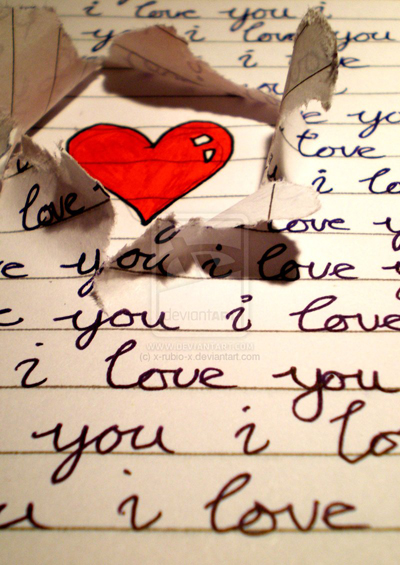 i love you i
you i love you
you
e yo
love
i lo
love
love y
ve you i love y
you i love
deviantART
WWW.DEVIANTART.COM
(c) x-rubio-x.deviantart.com
i love you
you i lo
u i love